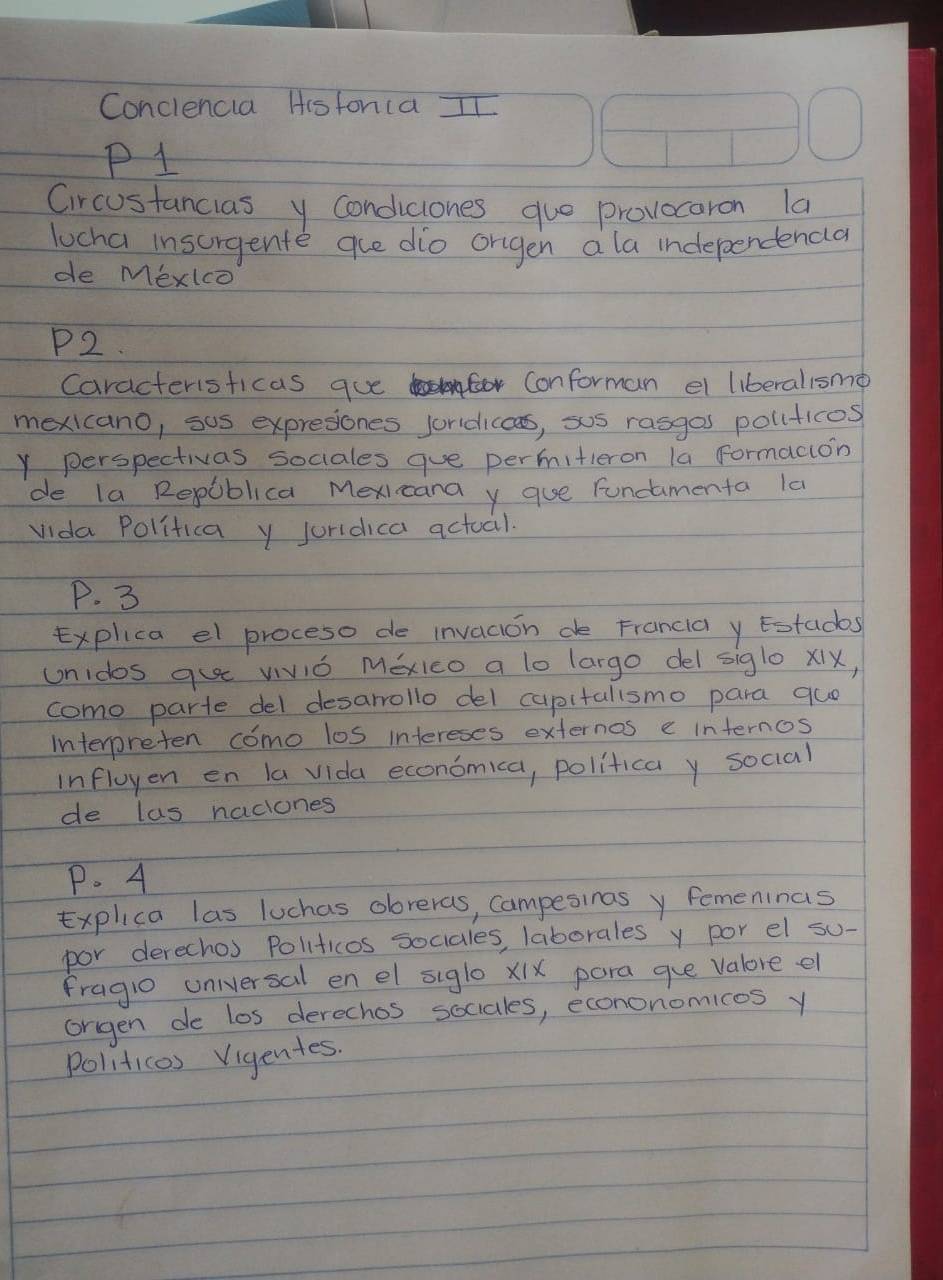 Conciencia Historia II
P 1
Circustancias y condiciones que provocaron la
lucha insurgente que dio origen a la independencia
de México
P2.
Caracteristicas que conforman el liberalismo
mexicano, sus expresiones juridicas, sus rasgos politicos
y perspectivas sociales que permitieron la formación
de la República Mexicana y que fundamenta la
vida Política y juridica actual.
P. 3
Explica el proceso de invación de Francia y Estados
unidos que vivió México a lo largo del siglo XIX,
como parte del desarrollo del capitalismo para que
interpreten cómo los intereses externos e internos
influyen en la vida económica, política y social
de las naciones
P. 4
Explica las luchas obreras, campesinas y femeninas
por derechos Politicos sociales, laborales y por el su-
fragio universal en el siglo XIX para que valore el
origen de los derechos sociales, econonomicos y
Politicos Vigentes.